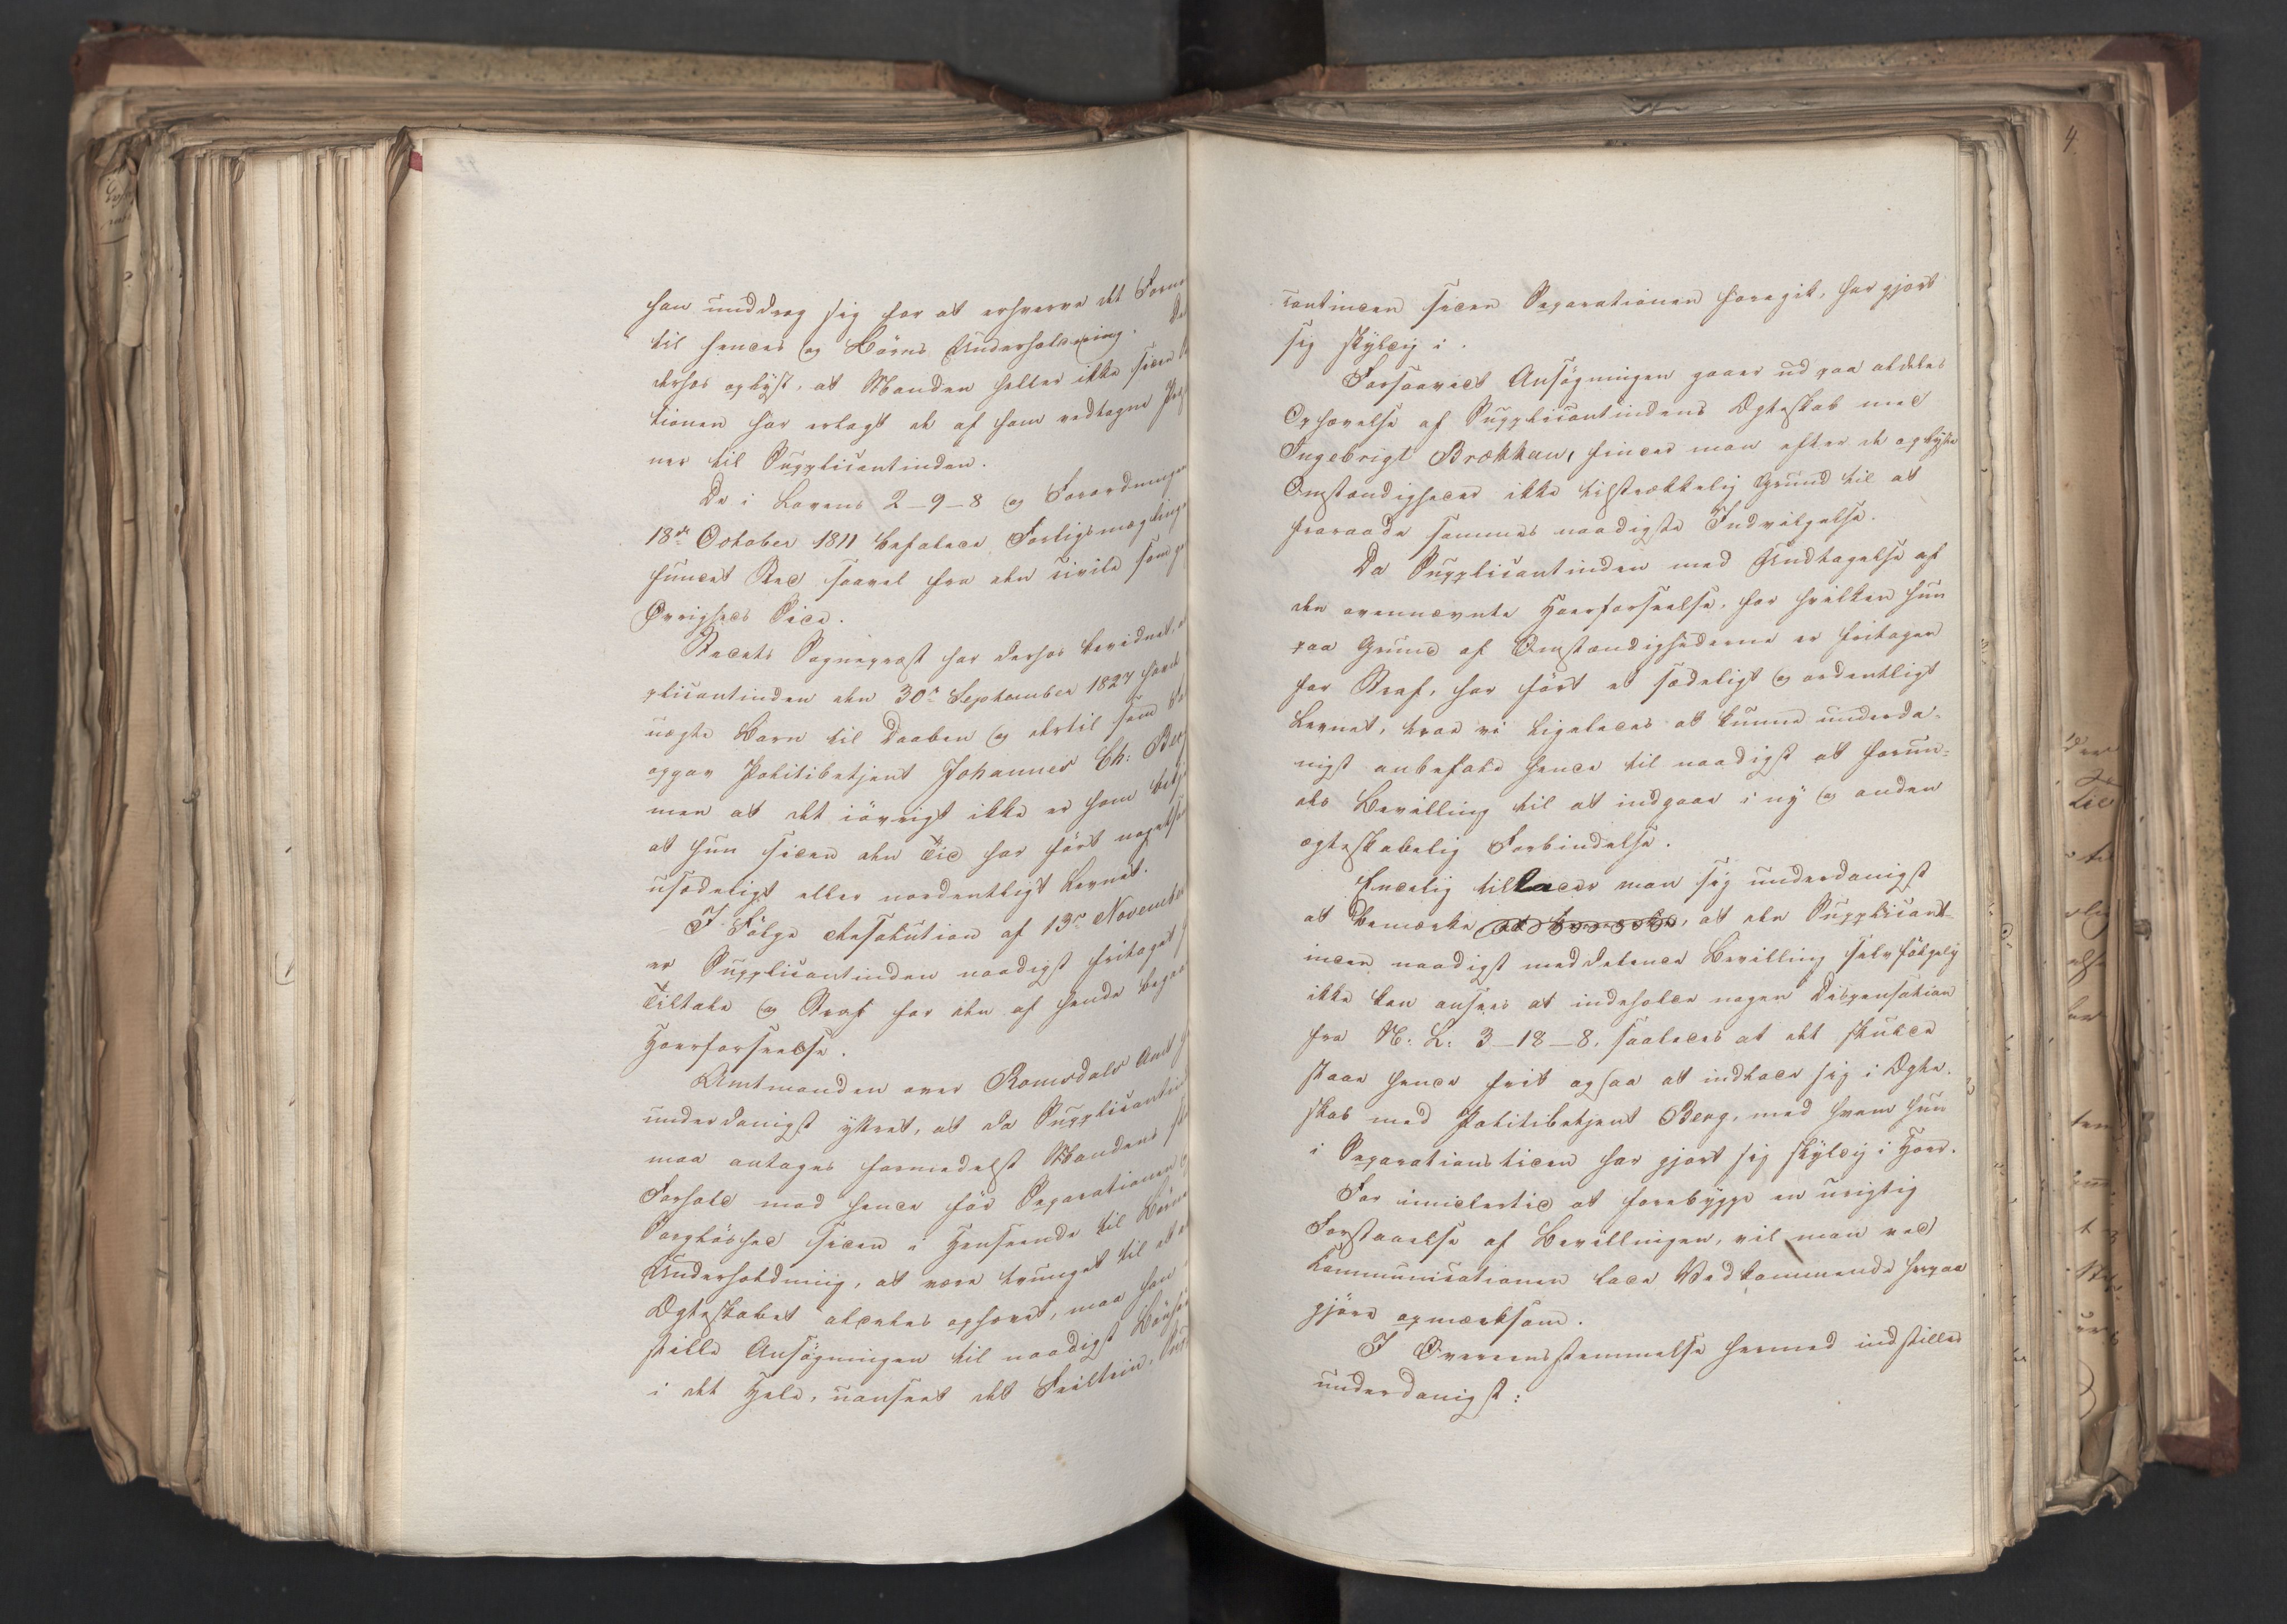 han unddrog sig for at erhverve det Forn
til hendes og Børns Underholdning. De
derhos oplyst, at Manden heller ikke siden
tionen har erlagt de af ham vedtagne Pe
ner til Supplicantinden.
De i Lovens 2-9-8 og Forordninge
18de October 1811 befalede Forligsmæglinge
fundet Sted saavel fra den civile som ge
Øvrigheds Side.
Stedets Sogneprest har derhos bevidnet, a
plicantinden den 30te September 1827 havde
uægte Barn til Daaben og dertil som Fa
opgav Politibetjent Johannes Ch: Berg
men at det iøvrigt ikke er ham bekj
at hun siden den Tid har ført noget
usædeligt eller uordentligt Levnet.
I Følge Resolution af 13de November
er Supplicantinden naadigst fritaget f
Tiltale og Straf for den af hende begaa
Hoerforseelse.
Amtmanden over Romsdals Amt
underdanigst yttret, at da Supplicantind
maa antages formedelst Mandens
Forhold mod hende før Separationen
Sorgløshed siden i Henseende til Børne
Underholdning, at være tvunget til at
Ægteskabet aldeles ophævet, maa han
stille Ansøgningen til naadigst Bønhø
i det Hele, uanseet det Feiltrin, Sup
cantinden siden Separationen foregik, har gjort
sig skyldig i.
Forsaavidt Ansøgningen gaaer ud paa aldeles
Ophævelse af Supplicantindens Ægteskab med
Ingebrigt Brækken, finder man efter de oplyste
Omstændigheder ikke tilstrækkelig Grund til at
fraraade sammes naadigste Indvilgelse.
Da Supplicantinden med Undtagelse af
den ovennævnte Hoerforseelse, for hvilken hun
paa Grund af Omstændighederne er fritagen
for Straf, har ført et sædeligt og ordentligt
Levnet, troe vi ligeledes at kunne underda-
nigst anbefale hende til naadigst at forun-
des Bevilling til at indgaae i ny og anden
ægteskabelig Forbindelse.
Endelig tillader man sig underdanigst
at bemærke, at den Supplicant-
inden naadigst meddelende Bevilling selvfølgelig
ikke kan ansees at indeholde nogen Dispensation
fra N: L: 3-18-8, saaledes at det skulde
staae hende frit ogsaa at indlade sig i Ægte-
skab med Politibetjent Berg, med hvem hun
i Separationstiden har gjort sig skyldig i Hoer.
For imidlertid at forebygge en urigtig
Forstaaelse af Bevillingen, vil man ved
Kommunicationen lade Vedkommende herpaa
gjøre opmærksom.
I Overeensstemmelse hermed indstilles
underdanigst: